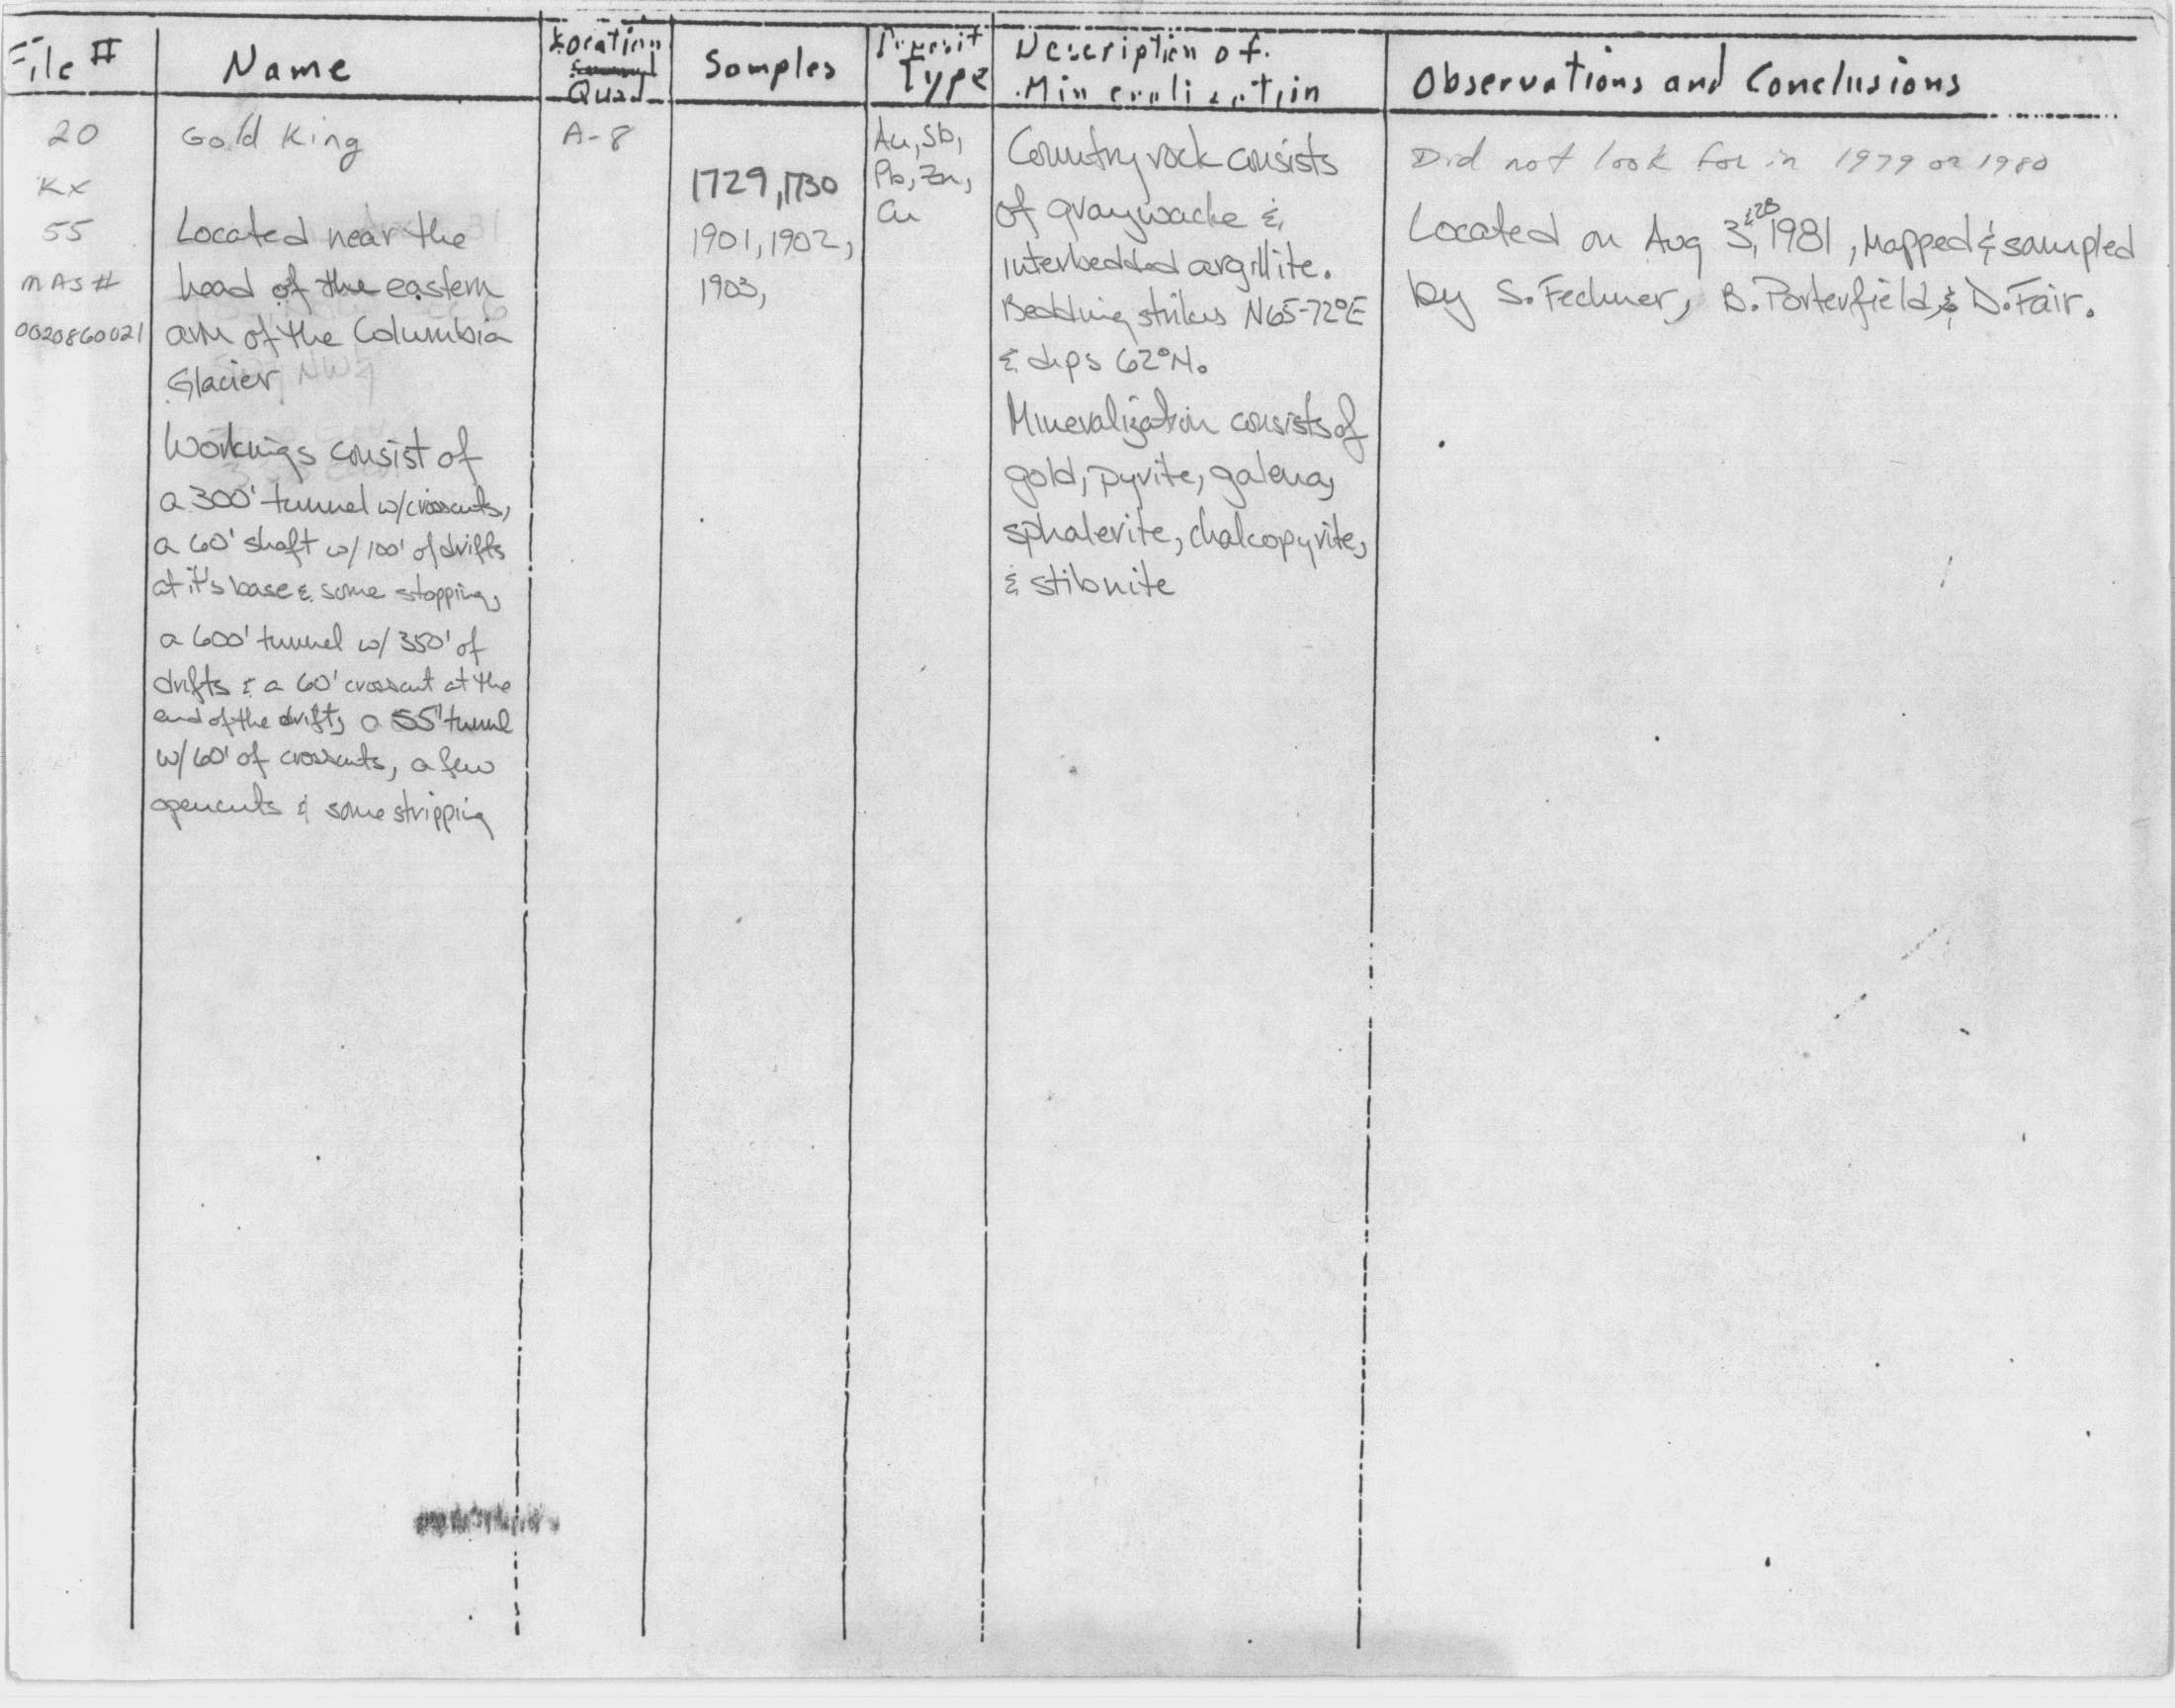 File #
Name
Location
Quad
Samples
Deposit
Type
Description of
Mineralization
Observations and Conclusions
20
Kx
55
MAS #
0020860021
Gold King
Located near the
head of the eastern
arm of the Columbia
Glacier
Workings consist of
a 300' tunnel w/crosscuts,
a 60' shaft w/ 100' of drifts
at it's base & some stopping,
a 600' tunnel w/ 350' of
drifts & a 60' crosscut at the
end of the drift, a 55' tunnel
w/ 60' of crosscuts, a few
opencuts & some stripping
A-8
1729, 1730
1901, 1902,
1903,
Au, Sb,
Pb, Zn,
Cu
Country rock consists
of graywacke &
interbedded argillite.
Bedding strikes N65-72°E
& dips 62°N.
Mineralization consists of
gold, pyrite, galena,
sphalerite, chalcopyrite,
& stibnite
Did not look for in 1979 or 1980
Located on Aug 3, & 28 1981, Mapped & sampled
by S. Fechner, B. Porterfield, & D. Fair.